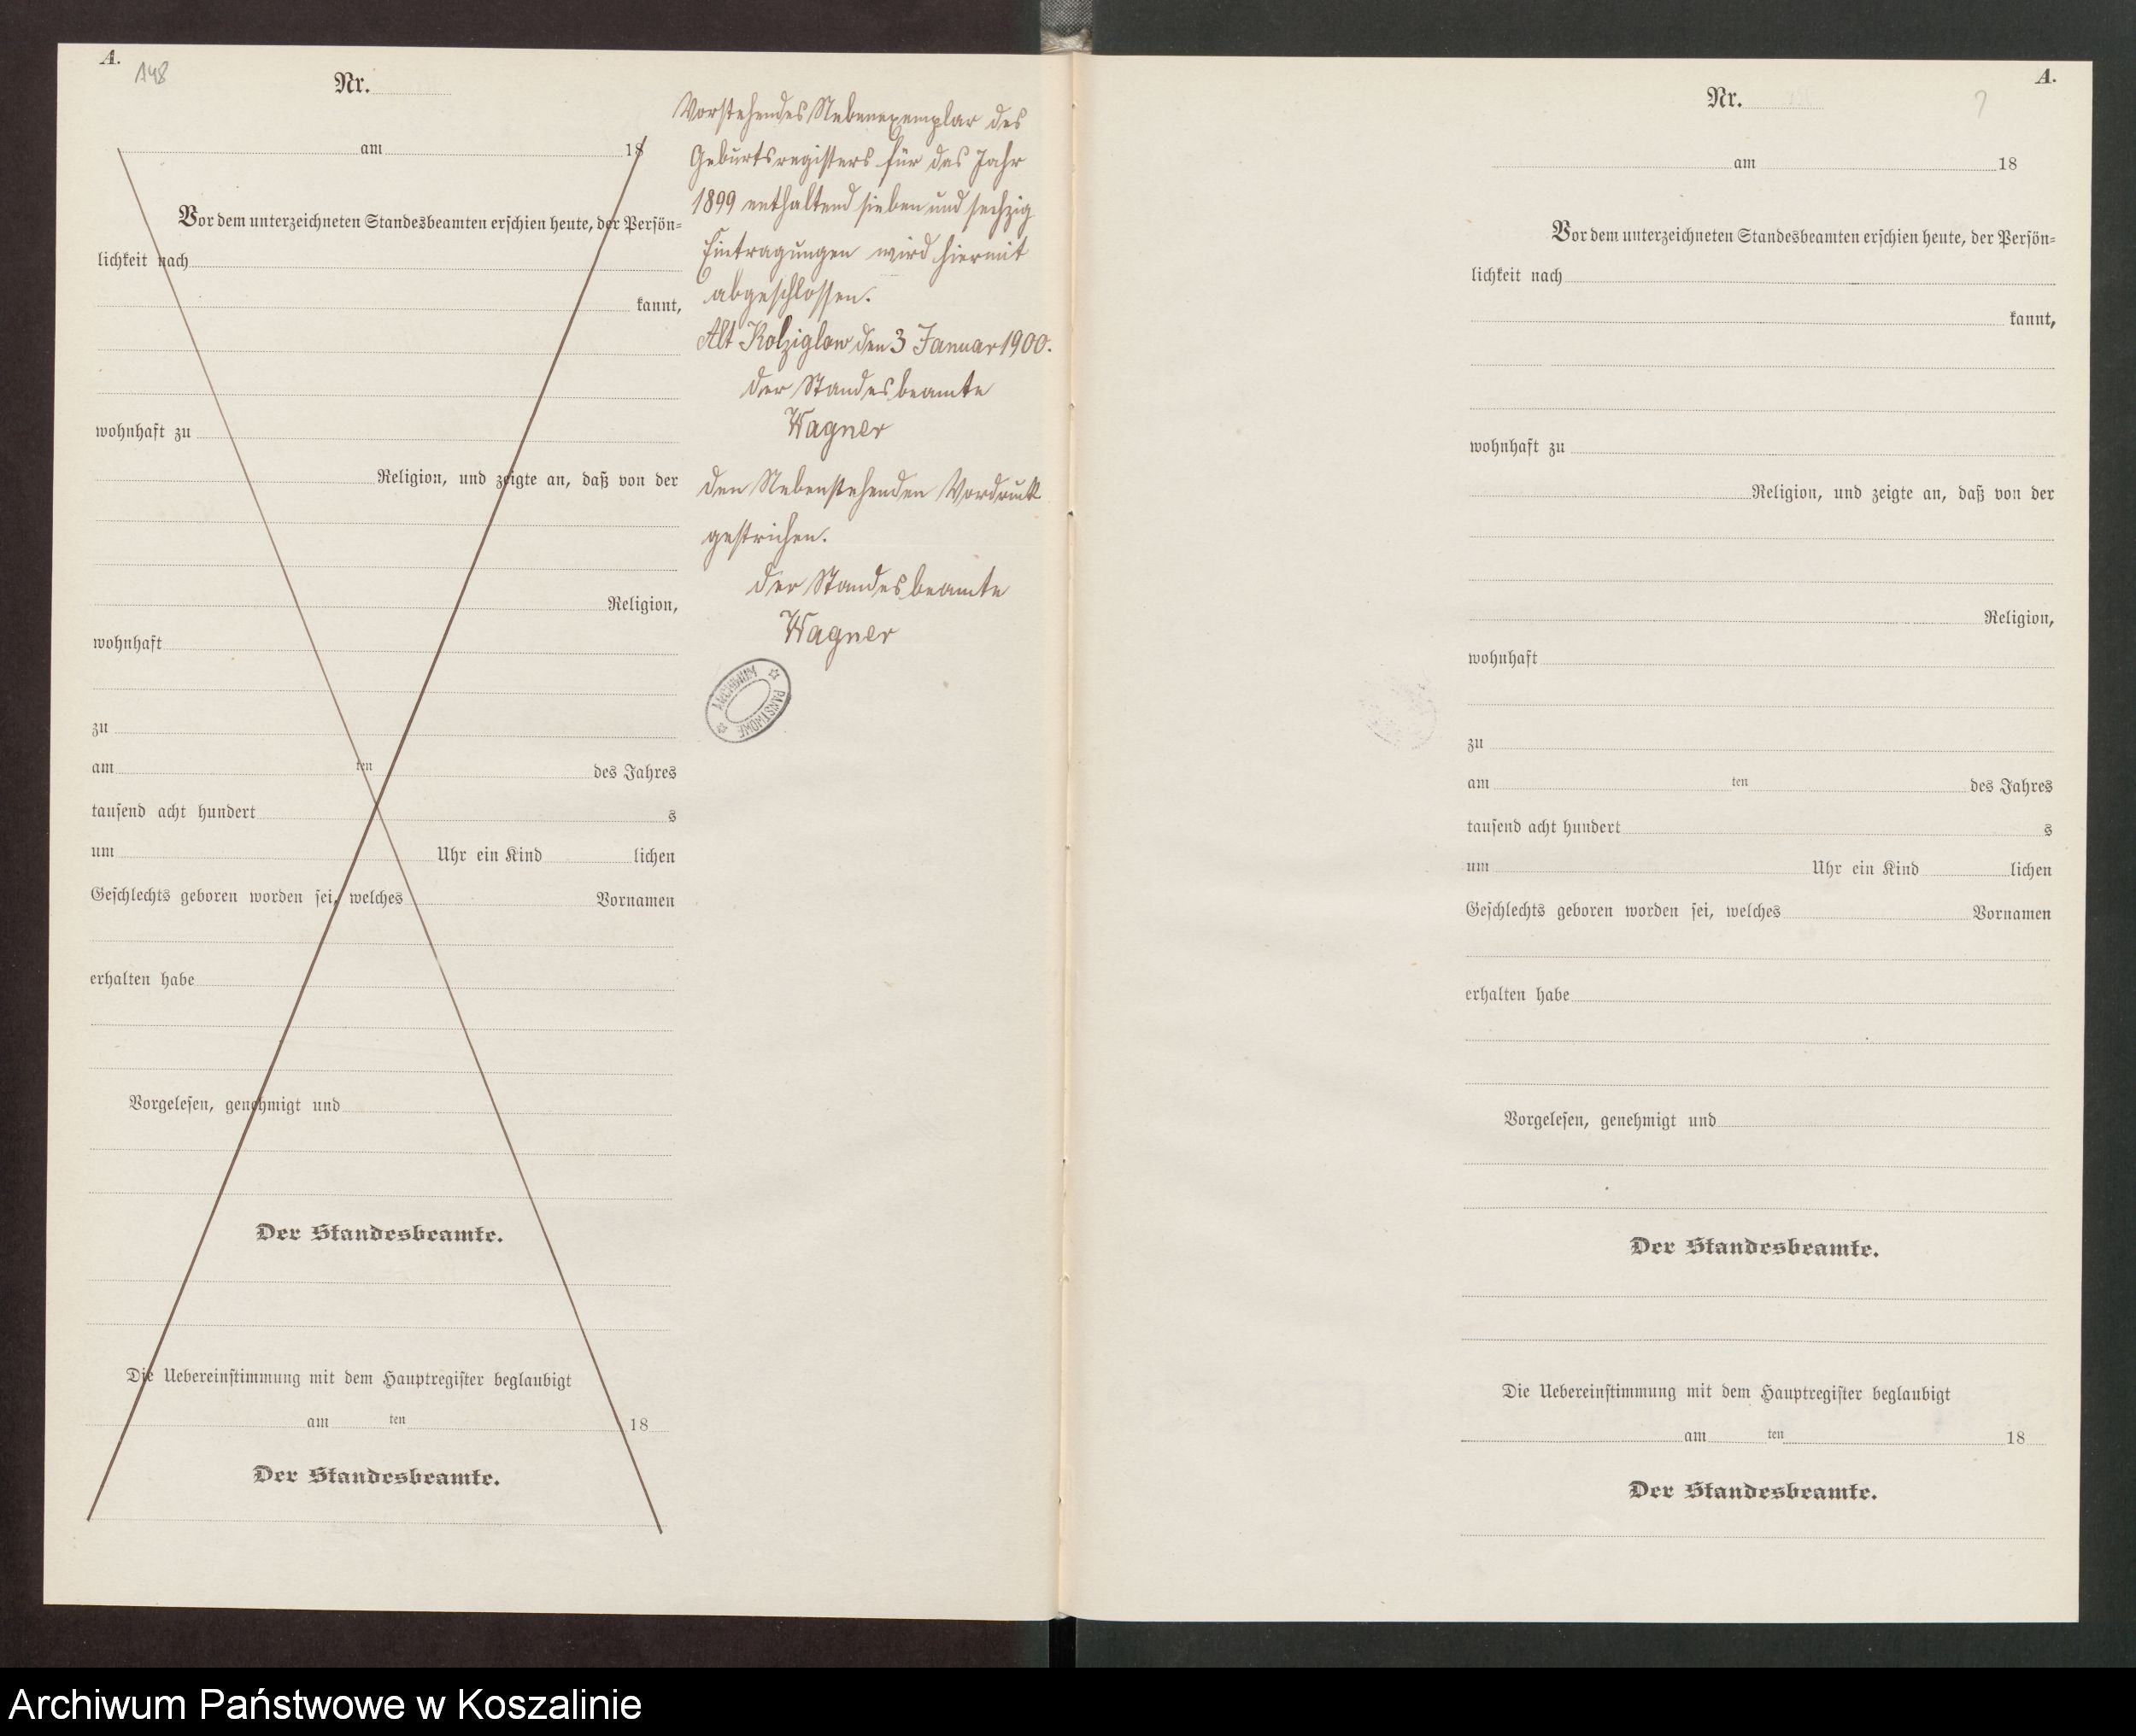 A.
148
Nr.
am 18
Vor dem unterzeichneten Standesbeamten erschien heute, der Persön-
lichkeit nach
kannt,
wohnhaft zu
Religion, und zeigte an, daß von der
Religion,
wohnhaft
zu
am ten des Jahres
tausend acht hundert s
um Uhr ein Kind lichen
Geschlechts geboren worden sei, welches Vornamen
erhalten habe
Vorgelesen, genehmigt und
Der Standesbeamte.
Die Uebereinstimmung mit dem Hauptregister beglaubigt
am ten 18
Der Standesbeamte.
Vorstehendes Nebenexemplar des
Geburtsregisters für das Jahr
1899 enthaltend sieben und sechzig
Eintragungen wird hiermit
abgeschlossen.
Alt Kolziglow den 3 Januar 1900.
der Standesbeamte
Wagner
den Nebenstehenden Vordruck
gestrichen.
der Standesbeamte
Wagner
ARCHIWUM
PAŃSTWOWE
A.
Nr.
?
am 18
Vor dem unterzeichneten Standesbeamten erschien heute, der Persön-
lichkeit nach
kannt,
wohnhaft zu
Religion, und zeigte an, daß von der
Religion,
wohnhaft
zu
am ten des Jahres
tausend acht hundert s
um Uhr ein Kind lichen
Geschlechts geboren worden sei, welches Vornamen
erhalten habe
Vorgelesen, genehmigt und
Der Standesbeamte.
Die Uebereinstimmung mit dem Hauptregister beglaubigt
am ten 18
Der Standesbeamte.
Archiwum Państwowe w Koszalinie